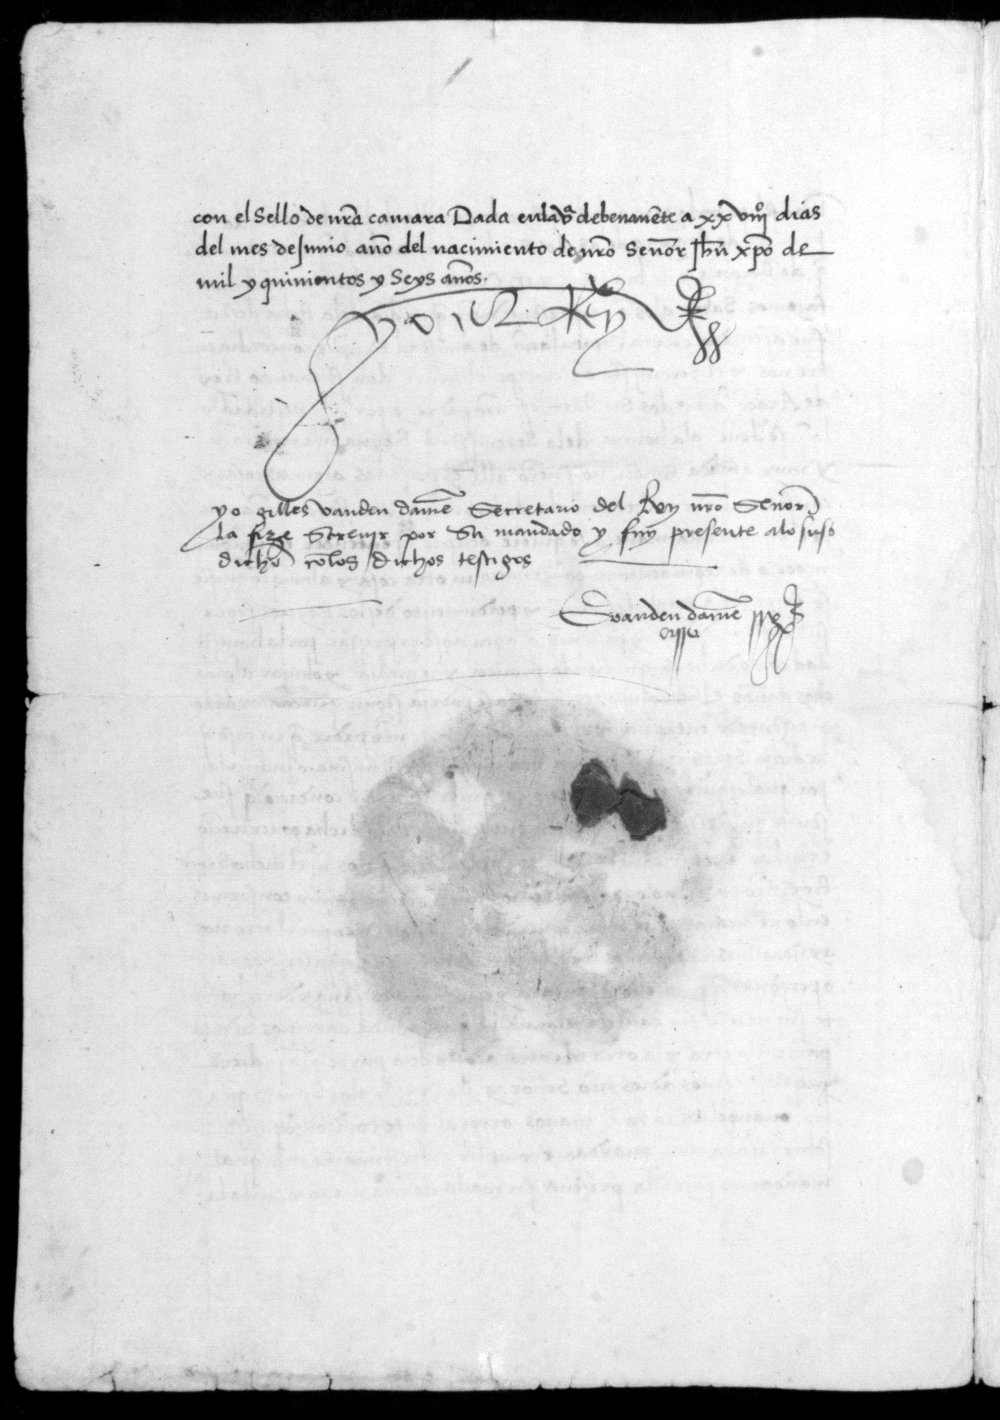 con el Sello de nr̃a camara Dada en la vª de benauẽte a xxviijº dias
del mes de Junio año del nacimiento de nr̃o Señor Jhũ xp̃o de
mil y quinientos y Seys años.
Yo el Rey
yo gilles vanden dam̃e Secretario del Rey nr̃o Señor
la fize Screuir por Su mandado y fuy presente a lo suso
dicho cõ los dichos testigos
G vanden dam̃e